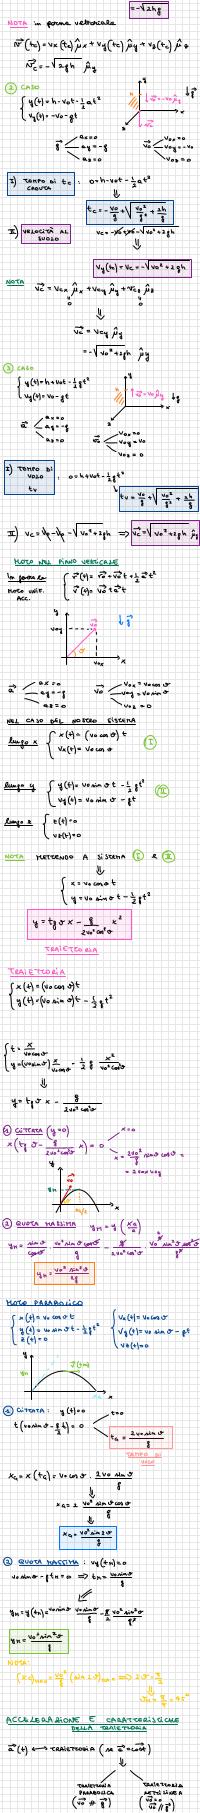 = -√2hg
NOTA in forma vettoriale
v⃗(tc) = vx(tc) μ̂x + vy(tc) μ̂y + vz(tc) μ̂z
v⃗c = -√2gh μ̂y
② CASO
y(t) = h - v0t - ½at²
vy(t) = -v0 - gt
ax = 0
ay = -g
az = 0
v0x = 0
v0y = -v0
v0z = 0
I) TEMPO DI CADUTA tc : 0 = h - v0t - ½at²
tc = -v0/g + √(v0²/g² + 2h/g)
II) VELOCITÀ AL SUOLO
vy(tc) = vc = -√(v0² + 2gh)
NOTA v⃗c = vcx μ̂x + vcy μ̂y + vcz μ̂z
v⃗c = vcy μ̂y
= -√(v0² + 2gh) μ̂y
③ CASO
y(t) = h + v0t - ½gt²
vy(t) = v0 - gt
ax = 0
ay = -g
az = 0
v0x = 0
v0y = v0
v0z = 0
I) TEMPO DI VOLO tv : 0 = h + v0t - ½gt²
tv = v0/g + √(v0²/g² + 2h/g)
II) vc = v0 - v0 - √(v0² + 2gh) ⇒ v⃗c = -√(v0² + 2gh) μ̂y
MOTO NEL PIANO VERTICALE
MOTO UNIF. ACC.
r⃗(t) = r⃗0 + v⃗0t + ½a⃗t²
v⃗(t) = v⃗0 + a⃗t
ax = 0
ay = -g
az = 0
v0x = v0 cosϑ
v0y = v0 sinϑ
v0z = 0
NEL CASO DEL NOSTRO SISTEMA
lungo x
x(t) = (v0 cosϑ)t
vx(t) = v0 cosϑ
I
lungo y
y(t) = v0 sinϑ t - ½gt²
vy(t) = v0 sinϑ - gt
II
lungo z
z(t) = 0
vz(t) = 0
NOTA METTENDO A SISTEMA I e II
x = v0 cosϑ t
y = v0 sinϑ t - ½gt²
y = tgϑ x - g/(2v0² cos²ϑ) x²
TRAIETTORIA
TRAIETTORIA
x(t) = (v0 cosϑ)t
y(t) = (v0 sinϑ)t - ½gt²
t = x/(v0 cosϑ)
y = (v0 sinϑ) x/(v0 cosϑ) - ½ g x²/(v0² cos²ϑ)
y = tgϑ x - g/(2v0² cos²ϑ)
① GITTATA (y=0)
x(tgϑ - g/(2v0² cos²ϑ) x) = 0
x = 0
x = 2v0²/g sinϑ cosϑ =
② QUOTA MASSIMA
yM = v0² sin²ϑ/2g
MOTO PARABOLICO
x(t) = v0 cosϑ t
y(t) = v0 sinϑ t - ½gt²
z(t) = 0
vx(t) = v0 cosϑ
vy(t) = v0 sinϑ - gt
vz(t) = 0
① GITTATA : y(t) = 0
t(v0 sinϑ - g/2 t) = 0
t = 0
tG = 2v0 sinϑ/g
TEMPO DI VOLO
xG = x(tG) = v0 cosϑ · 2v0 sinϑ/g
xG = 2 v0² sinϑ cosϑ/g
xG = v0² sin2ϑ/g
② QUOTA MASSIMA : vy(t) = 0
v0 sinϑ - gtM = 0 ⇒ tM = v0 sinϑ/g
yM = y(tM) = v0 sinϑ v0 sinϑ/g - g/2 v0² sin²ϑ/g²
yM = v0² sin²ϑ/2g
NOTA:
(xG)max = v0²/g (sin2ϑ)max ⇒ 2ϑ = π/2
ϑM = π/4 = 45°
ACCELERAZIONE E CARATTERISTICHE
DELLA TRAIETTORIA
a⃗(t) ⟷ TRAIETTORIA (se a⃗ = cost)
TRAIETTORIA PARABOLICA
TRAIETTORIA RETTILINEA